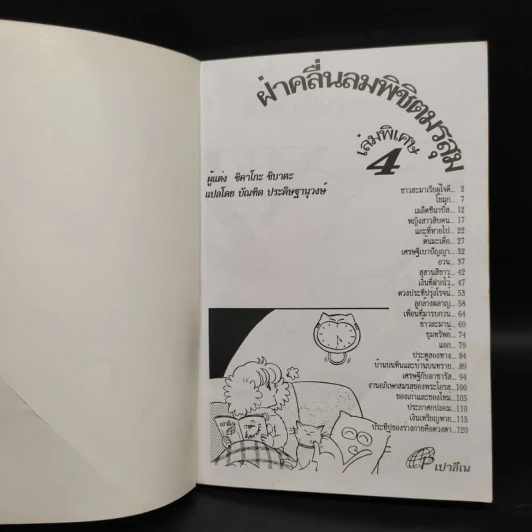 ฝ่าคลื่นลมพิชิตมรสุม
เล่มพิเศษ
4
ผู้แต่ง ชิคาโกะ ชิบาตะ
แปลโดย บัณฑิต ประดิษฐานุวงษ์
ชาวสะมาเรียผู้ใจดี... 2
ไข่มุก... 7
เมล็ดซีนาปีส... 12
หญิงสาวสิบคน... 17
แกะที่หายไป... 22
ต้นมะเดื่อ... 27
เศรษฐีเบาปัญญา... 32
อวน... 37
สุสานสีขาว... 42
เงินที่ฝากไว้... 47
ดวงประทีปรุ่งโรจน์... 53
ลูกล้างผลาญ... 58
เพื่อนที่มารบกวน... 64
ข้าวละมาน... 69
ขุมทรัพย์... 74
แอก... 79
ประตูสองทาง... 84
บ้านบนหินและบ้านบนทราย... 89
เศรษฐีกับลาซารัส... 94
งานอภิเษกสมรสของพระโอรส... 100
ของเก่าและของใหม่... 105
ประกาศกปลอม... 110
เงินเหรียญหาย... 115
ประทีปของร่างกายคือดวงตา... 120
เปาลีเน